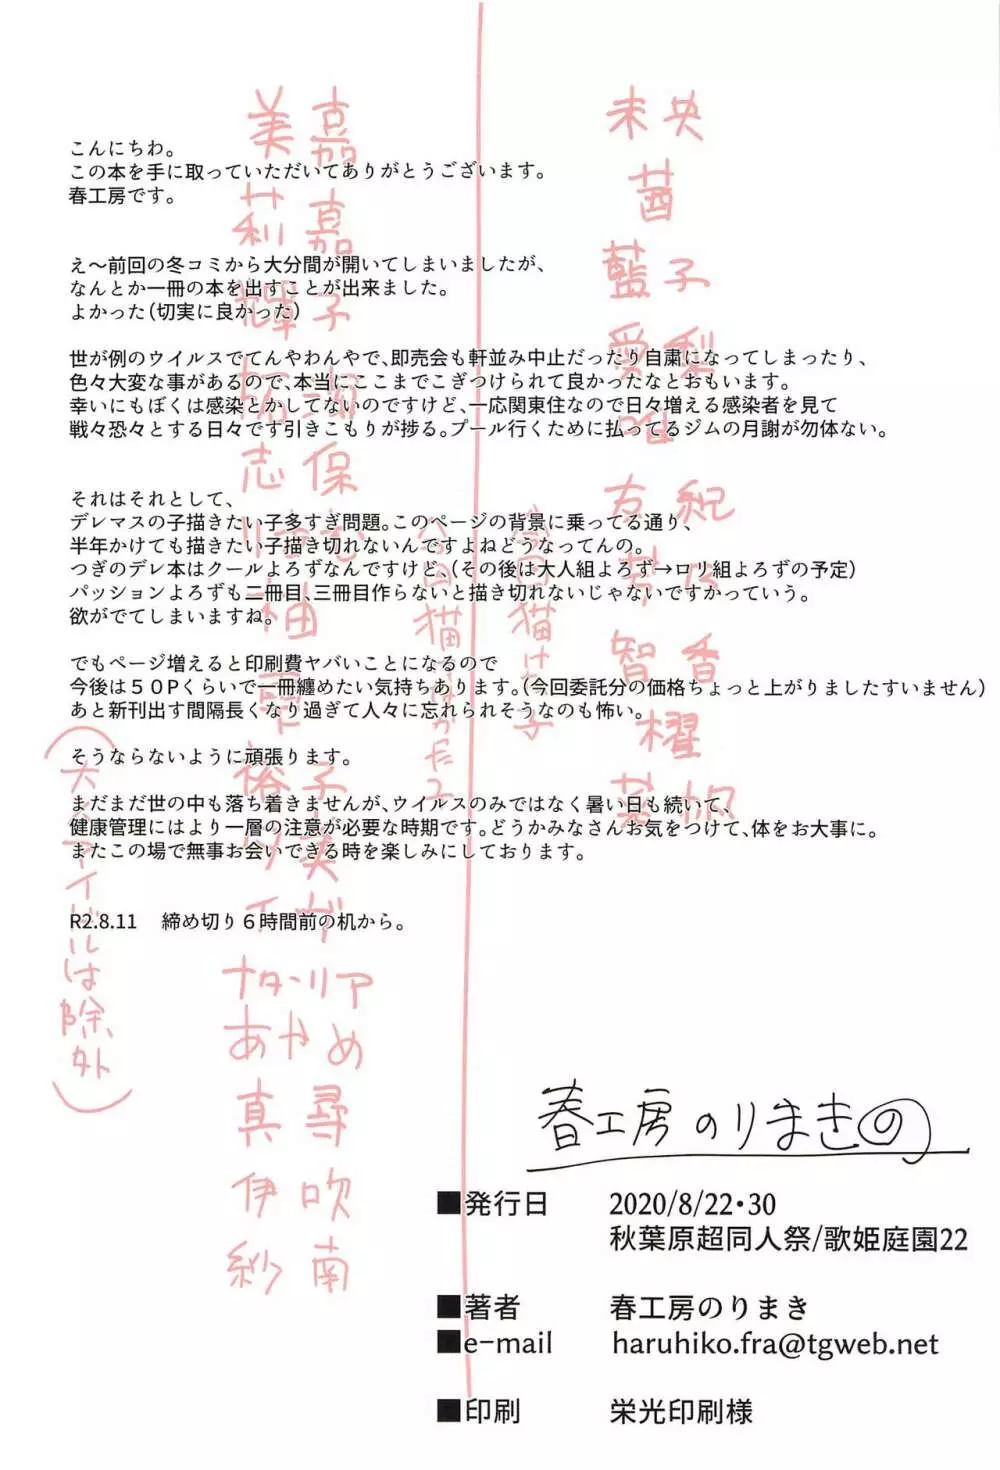 こんにちわ。
この本を手に取っていただいてありがとうございます。
春工房です。
え〜前回の冬コミから大分間が開いてしまいましたが、
なんとか一冊の本を出すことが出来ました。
よかった(切実に良かった)
世が例のウイルスでてんやわんやで、即売会も軒並み中止だったり自粛になってしまったり、
色々大変な事があるので、本当にここまでこぎつけられて良かったなとおもいます。
幸いにもぼくは感染とかしてないのですけど、一応関東住なので日々増える感染者を見て
戦々恐々とする日々です引きこもりが捗る。プール行くために払ってるジムの月謝が勿体ない。
それはそれとして、
デレマスの子描きたい子多すぎ問題。このページの背景に乗ってる通り、
半年かけても描きたい子描き切れないんですよねどうなってんの。
つぎのデレ本はクールよろずなんですけど、(その後は大人組よろず→ロリ組よろずの予定)
パッションよろずも二冊目、三冊目作らないと描き切れないじゃないですかっていう。
欲がでてしまいますね。
でもページ増えると印刷費ヤバいことになるので
今後は５０Pくらいで一冊纏めたい気持ちあります。(今回委託分の価格ちょっと上がりましたすいません)
あと新刊出す間隔長くなり過ぎて人々に忘れられそうなのも怖い。
そうならないように頑張ります。
まだまだ世の中も落ち着きませんが、ウイルスのみではなく暑い日も続いて、
健康管理にはより一層の注意が必要な時期です。どうかみなさんお気をつけて、体をお大事に。
またこの場で無事お会いできる時を楽しみにしております。
R2.8.11　締め切り６時間前の机から。
未央
茜
藍子
愛梨
唯
友紀
智香
櫂
美嘉
莉嘉
輝子
拓海
志保
りあむ
裕子
ナターリア
あやめ
真尋
伊吹
紗南
は除外)
春工房のりまきの
■発行日　2020/8/22・30
秋葉原超同人祭/歌姫庭園22
■著者　春工房のりまき
■e-mail　haruhiko.fra@tgweb.net
■印刷　栄光印刷様